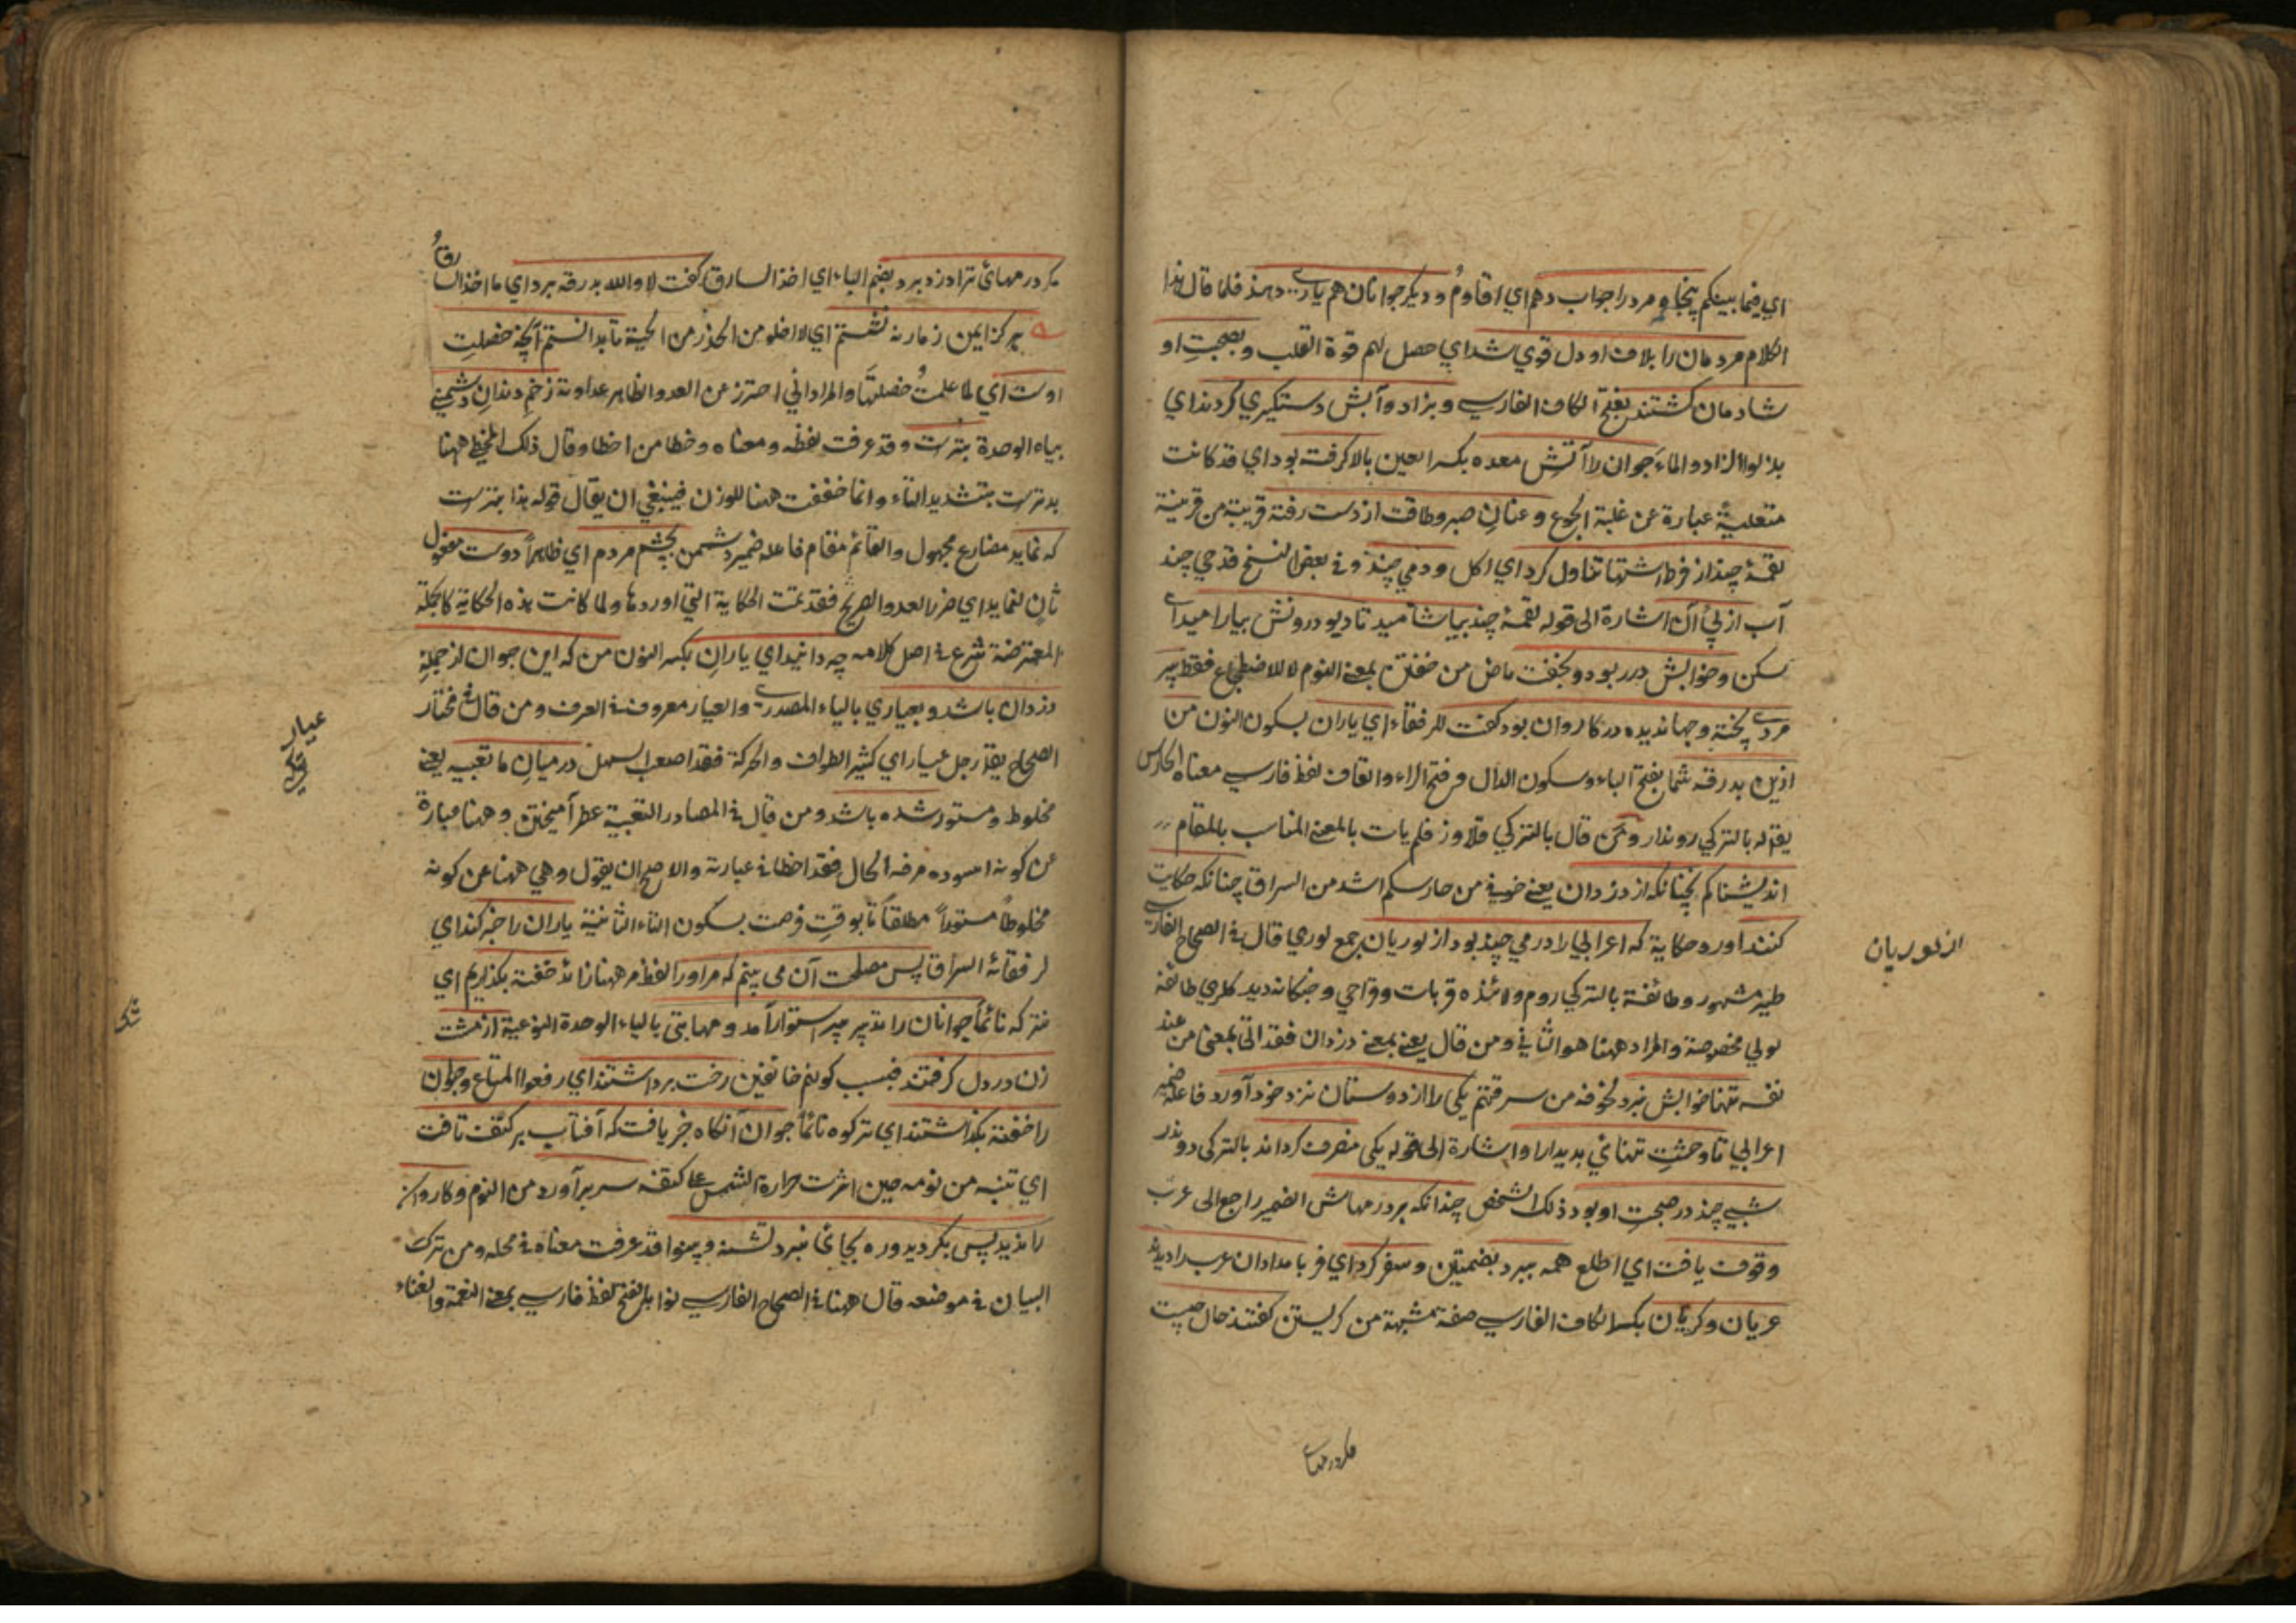 اي فيما بينكم پنجاه مرد را جواب دهم اي اقاوم و ديكر جوانان هم ياري دهند فلما قال هذا
الكلام مردمان را بلاف او دل قوي شد اي حصل لهم قوة القلب و بصحبت او
شادمان كشتند بفتح الكاف الفارسي و بزاد و آبش دستكيري كردند اي
بذلوا الزاد والماء جوان را آتش معده بكسر العين بالا كرفته بود اي قد كانت
متعلية عبارة عن غلبة الجوع و عنان صبر و طاقت از دست رفته قريبة من قرينة
لقمۀ چند از فرط اشتها تناول كرد اي اكل و دمي چند و في بعض النسخ قدحي چند
آب از پي آن اشارة الى قوله لقمۀ چند بياشاميد تا ديو درونش بياراميد اي
سكن و خوابش در ربود و بخفت ماض من خفتن بمعنى النوم لا للاضطجاع فقط پير
مردي پخته و جهانديده در كاروان بود كفت للرفقاء اي ياران بسكون النون من
ازين بدرقه شما بفتح الباء و سكون الدال و فتح الراء والقاف لفظ فارسي معناه الحارس
يقال له بالتركي روندار و من قال بالتركي قلاوز فلم يات بالمعنى المناسب بالمقام
انديشناكم بچنانكه از دزدان يعني خوفي من حارسكم اشد من السراق چنانكه حكايت
كنند اورد حكاية كه اعرابي را درمي چند بود از لوريان جمع لوري قال في الصحاح الفارسي
طير مشهور و طائفة بالتركي روم ولائذه قربات وواحي و جنكانه ديدكلري طائفه
لولي مخصوصة والمراد ههنا هو الثاني و من قال يعني بمعنى دزدان فقد اتى بمعنى من عند
نفسه تنها خوابش نبرد لخوفه من سرقتهم يكي را از دوستان نزد خود آورد فاعله ضمير
اعرابي تا وحشت تنهائي بديدار او اشارة الى قوله يكي منصرف كرداند بالتركي دوندر
شبي چند در صحبت او بود ذلك الشخص چندانكه بر درمهاش الضمير راجع الى عرب
وقوف يافت اي اطلع همه ببرد بضمتين و سفر كرد اي فر بامدادان عرب را ديدند
عريان و كريان بكسر الكاف الفارسي صفة مشبهة من كريستن كفتند حال چيست
مكر درمهاي
از لوريان
مكر درمهائ ترا دزد برد بضم الباء اي اخذ السارق كفت لا والله بدرقه برد اي ما اخذ السارق
هركز ايمن ز مار ننشستم اي لا اخلو من الحذر من الحية تا بدانستم آنچه خصلت
اوست اي لما علمت خصلتها والمراد اني احترز عن العدو الظاهر عداوته زخم دندان دشمني
بياء الوحدة بترست وقد عرفت لفظه و معناه و خطا من اخطا و قال ذلك المخطئ ههنا
بدترست بتشديد التاء و انما خففت ههنا للوزن فينبغي ان يقال قوله بذا بترست
كه نمايد مضارع مجهول والقائم مقام فاعله ضمير دشمن بچشم مردم اي ظاهراً دوست مفعول
ثان لنمايد اي ضرر العدو الصريح فقد تمت الحكاية التي اوردها و لما كانت هذه الحكاية كالجملة
المعترضة شرع في اصل كلامه چه دانيد اي ياران بكسر النون من كه اين جوان از جملۀ
دزدان باشد و بعياري بالياء المصدري والعيار معروف في العرف و من قال في مختار
الصحاح يقال رجل عيار اي كثير الطواف والحركة فقد اصعب السهل در ميان ما تعبيه يعني
مخلوط و مستور شده باشد و من قال في المصادر التعبية عطر آميختن و ههنا عبارة
عن كونه اسوده مرفه الحال فقد اخطا في عبارته والاصح ان يقول وهي ههنا عن كونه
مخلوطاً مستوراً مطلقاً تا بوقت فرصت بسكون التاء الثانية ياران را خبر كند اي
لرفقائه السراق پس مصلحت آن مي بينم كه مر او را لفظ مر ههنا زائد خفته بكذاريم اي
نتركه نائماً جوانان را تدبير پير استوار آمد و مهابتي بالياء الوحدة النوعية از مشت
زن در دل كرفتند فبسبب كونهم خائفين رخت برداشتند اي رفعوا المتاع و جوان
را خفته بكذاشتند اي تركوه نائماً جوان آنكاه خبر يافت كه آفتاب بر كتف تافت
اي تنبه من نومه حين اثرت حرارة الشمس على كتفه سر برآورد من النوم و كاروان
را نديد پس بكرديد و ره بجائي نبرد تشنه و بينوا قد عرفت معناه في محله و من ترك
البيان في موضعه قال ههنا في الصحاح الفارسي نوا بالفتح لفظ فارسي بمعنى النغمة والغناء
عيار